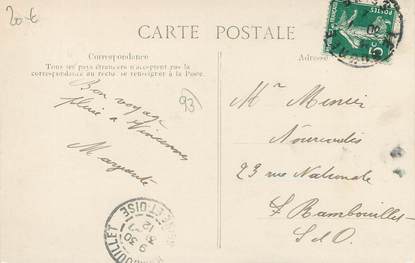 20 €
CARTE POSTALE
Correspondance
Tous les pays étrangers n'acceptent pas la
correspondance au recto, se renseigner à la Poste.
Adresse
5c
93
Bon voyage
pluie a Vincennes
Mr
23 rue Nationale
Rambouillet
S et O.
RAMBOUILLET
9 30
31 12
SEINE-ET-OISE